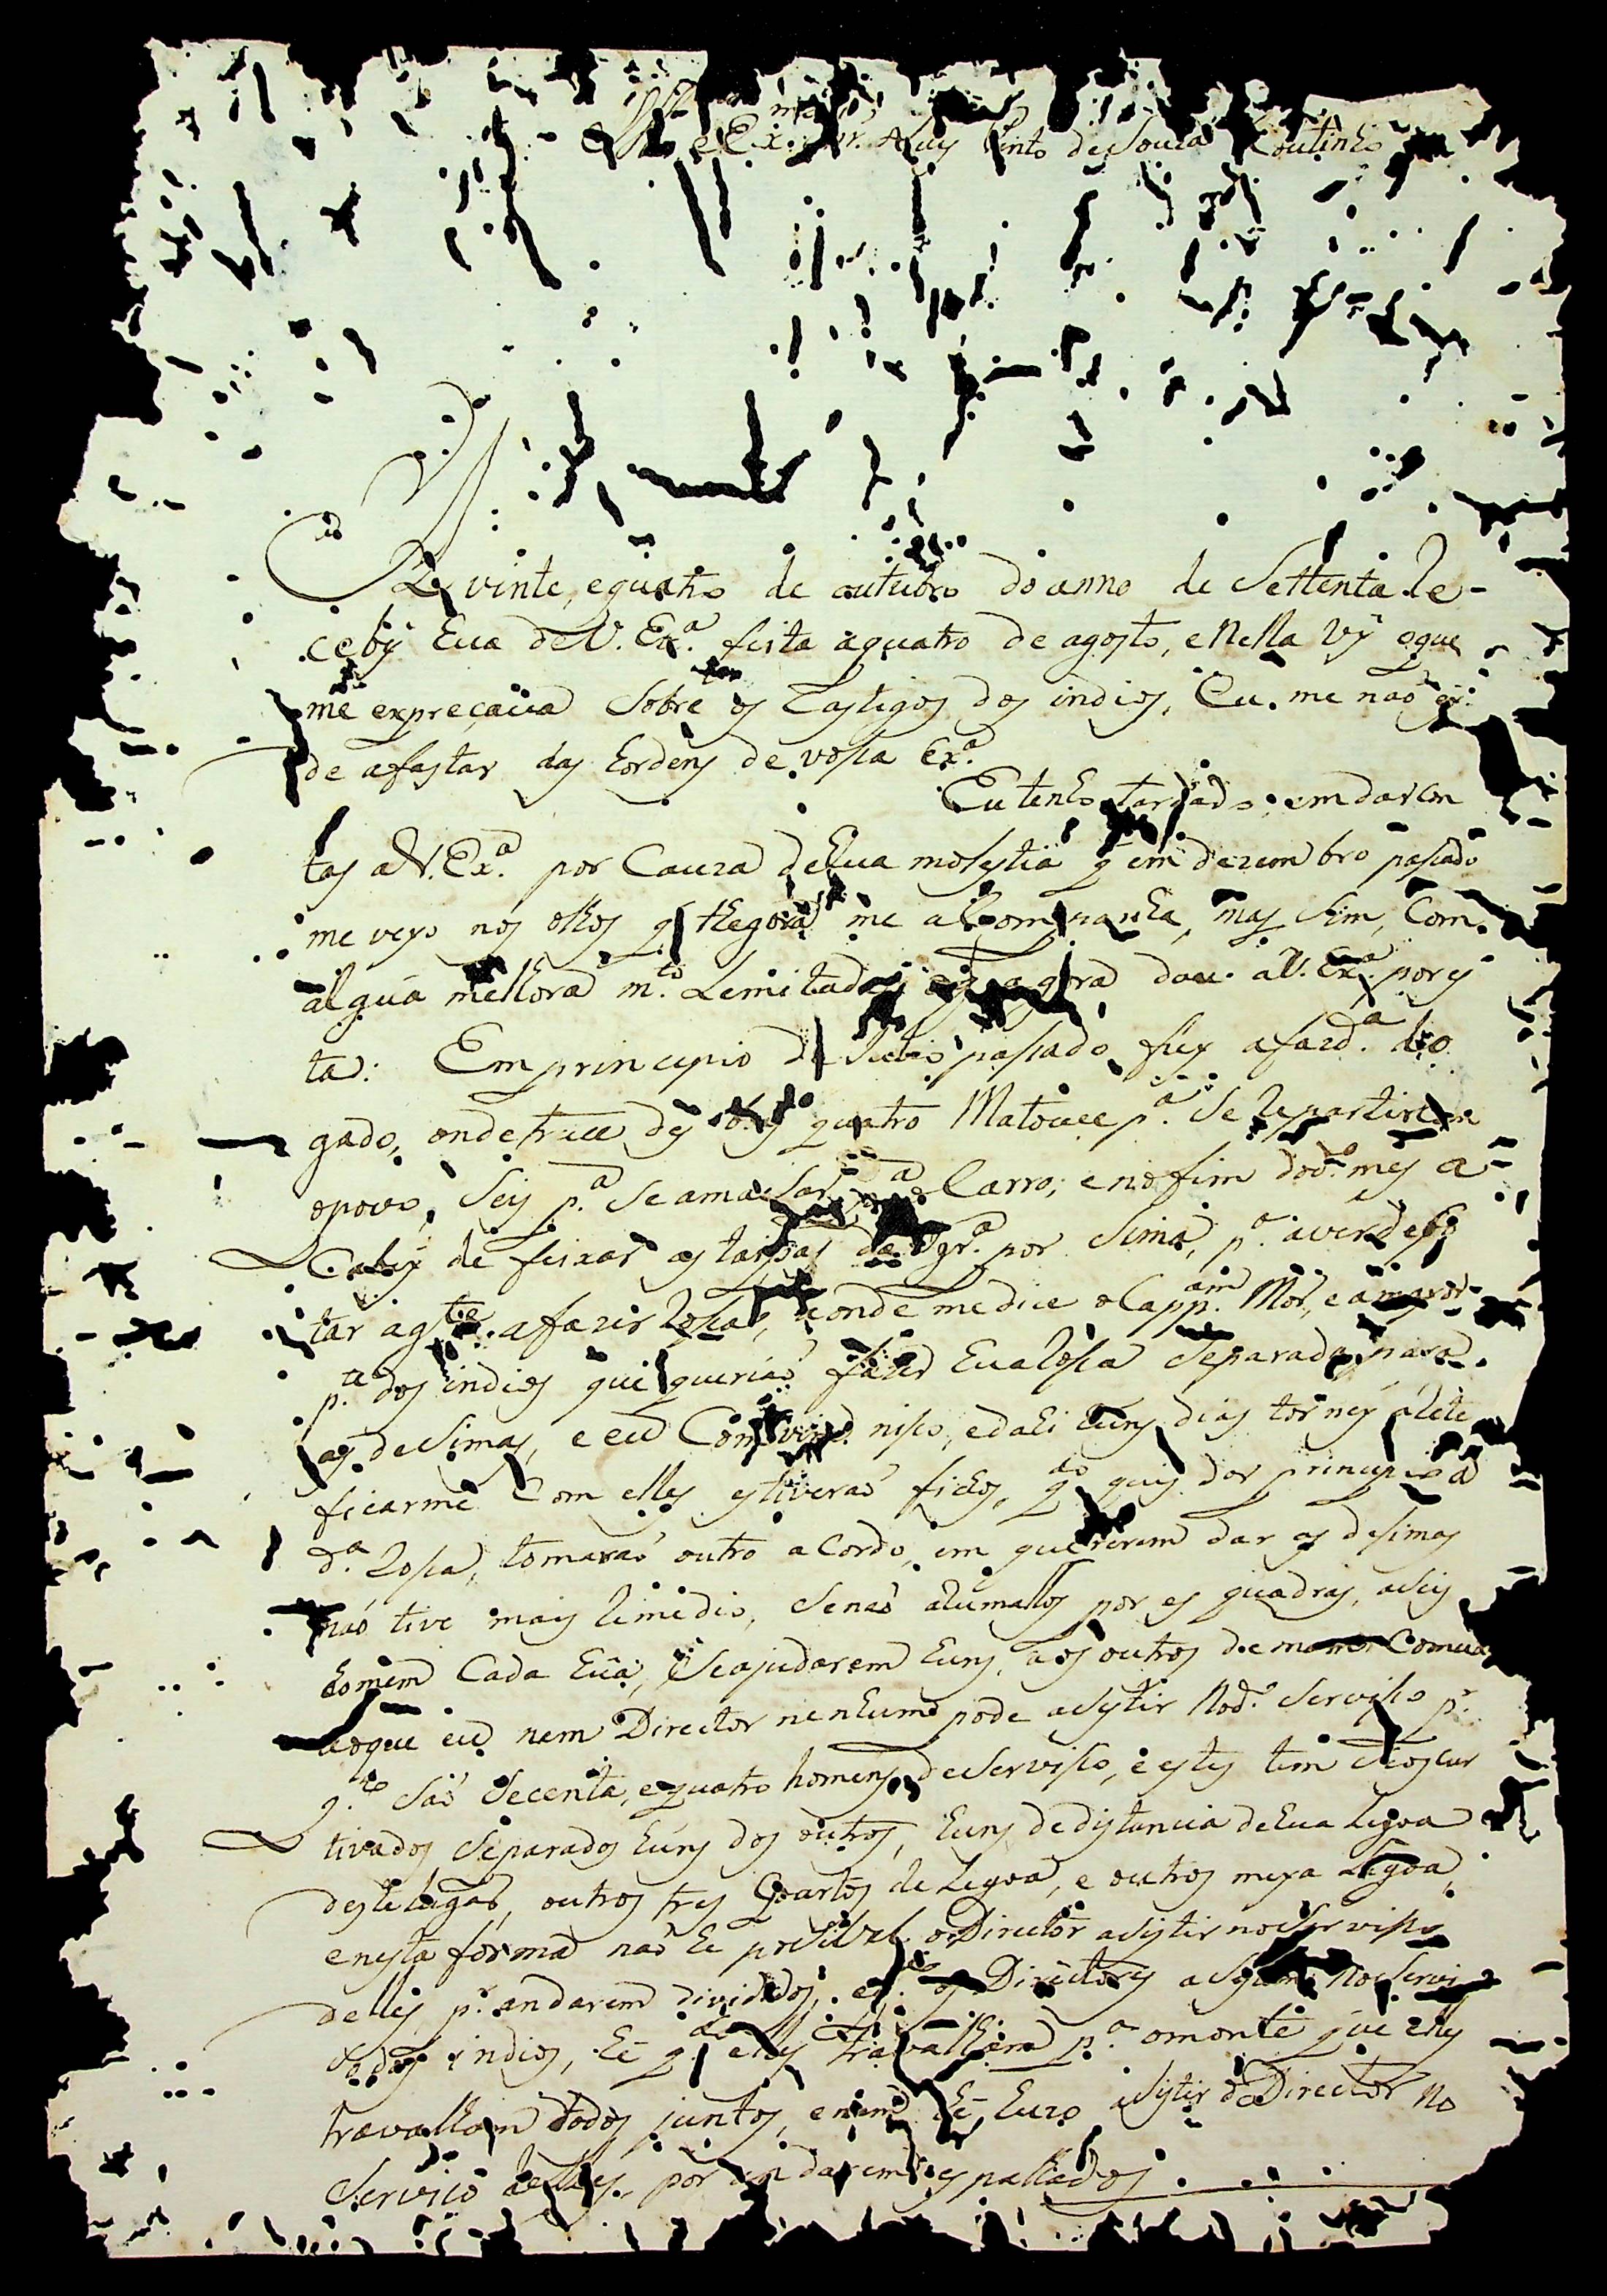 e Ex.mo Sr. Luis Pinto de Souza Coutinho
Em vinte, equatro de outubro do anno de Settenta Re-
ceby hua de V. Ex.ª feita aquatro de agosto, e Nella vÿ oque
me expreçaua Sobre os Castigos dos indios, Eu me naõ ei
de afastar das hordens de vossa Ex.ª
Eu tenho tardado em dar Con
tas a V. Ex.ª por Cauza de hua molestia q̃ em dezembro passado
me veyo nos olhos q̃ thegora me acompanha, mas sim, Com
algua melhora m.to Lemitada agora dou a V. Ex.ª por es
ta: Em principio de passado fuy a fazd.ª do
gado, onde truce des quatro Matouce p.ª se Repartirem
o povo, Seis p.ª se amansar p.ª o Carro; e no fim do d.º mes a
Cabey de feixar as taipas da Igr.ª por Sima, p.ª aver de bo
tar a g.te a fazer Rossas, aonde me dice o Capp.am Mor, e a mayor
p.te dos indios que queriaõ fazer hua Rossa Separada para
as desimas, e eu Comvim nisso, e dali huns dias torney a Rete
ficarme Com elles estiveraõ fichos, q.do quis dar principio a
d.ª Rossa, tomaraõ outro acordo, em quererem dar as desimas
naõ tive mais Remedio, Senaõ arumallos por es quadras, a seis
homem Cada hua, e Se ajudarem huns, aos outros de maour Comua
aoque eu nem Director nenhum pode asystir No d.º Servisso p.r
q.to Saõ Secenta, e quatro homens de Servisso, e estes tem Seos cur
tivados Separados huns dos outros, huns de distancia de hua Legoa
deste lugar, outros tres Quartos de Legoa, e outros meya Legoa,
e nesta forma naõ he posivel o Director asystir no Servisso
delles, p.r andarem divididos, os Directores no Servi
So dos indios, he q.do elles travalhem p.ª o monte que elles
travalhem todos juntos, e nem he huzo asystir o Director no
Serviso delles, por andarem espalhados.